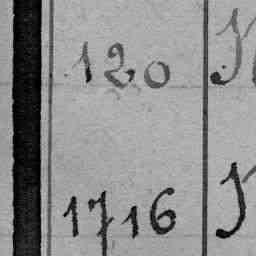 120
1716